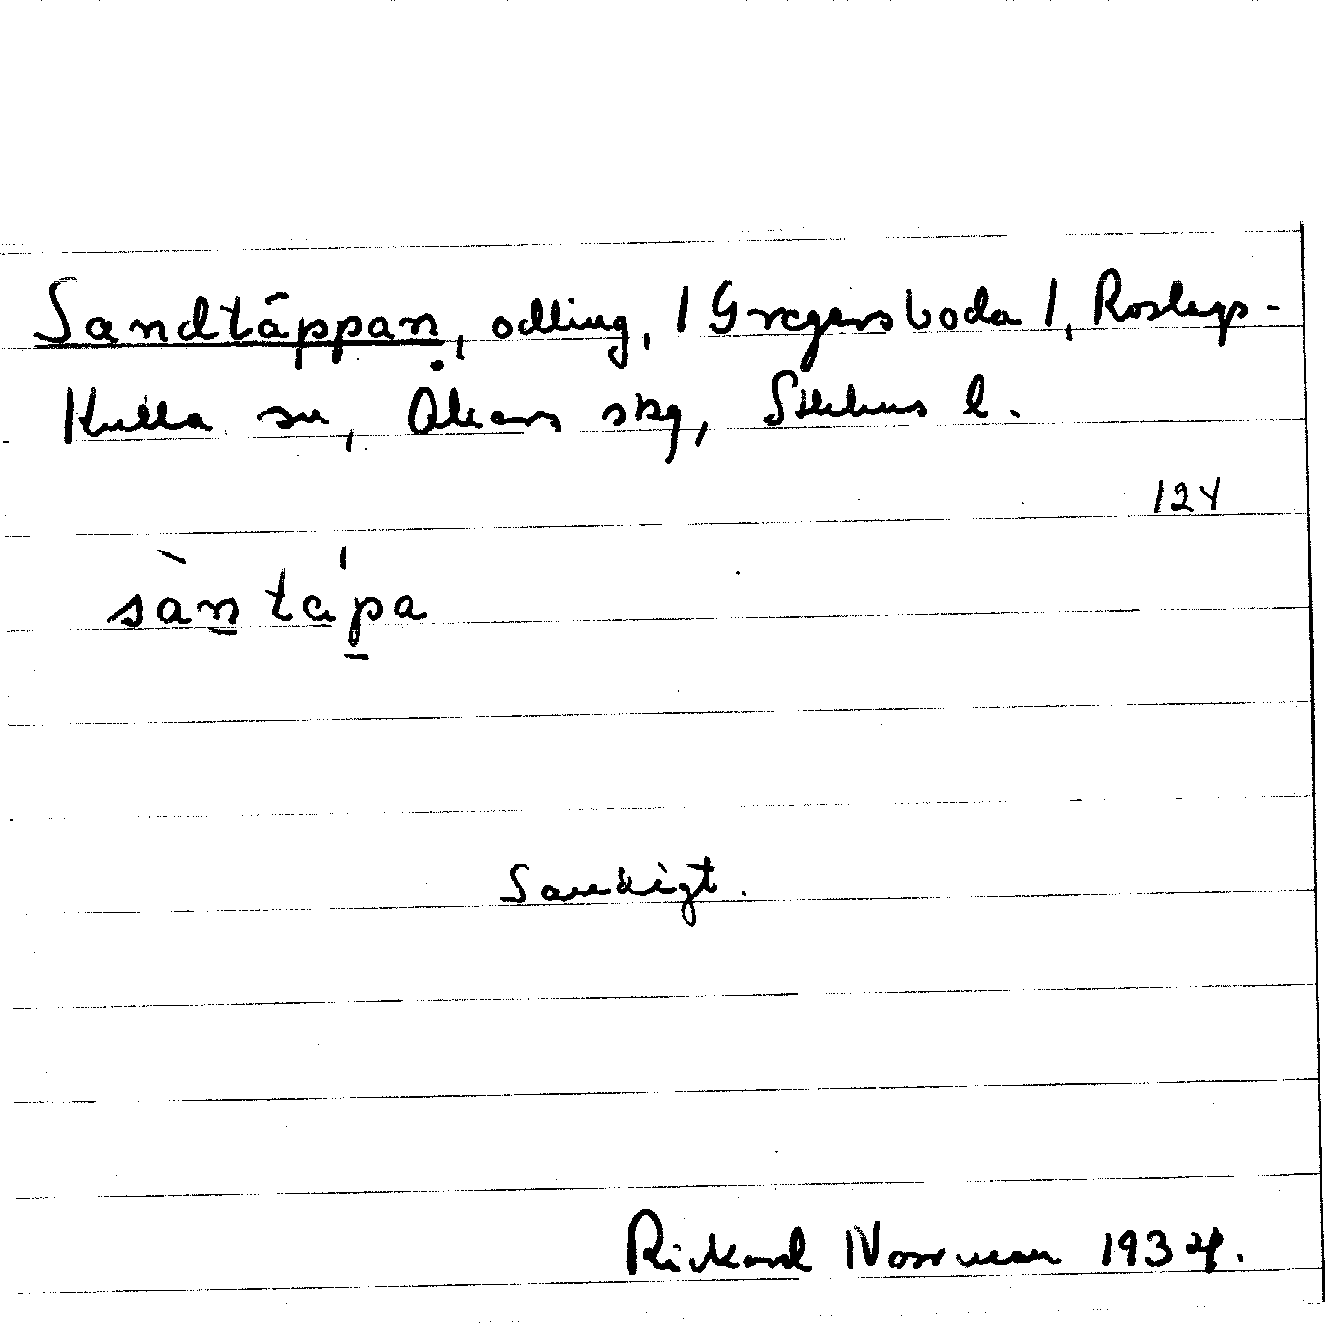 Sandtäppan, odling, / Gregersboda /, Roslags-
Kulla sn, Åkers skg, Sthlms l.
124
sàn ta'pa
Sandigt.
Rickard Norrman 1934.